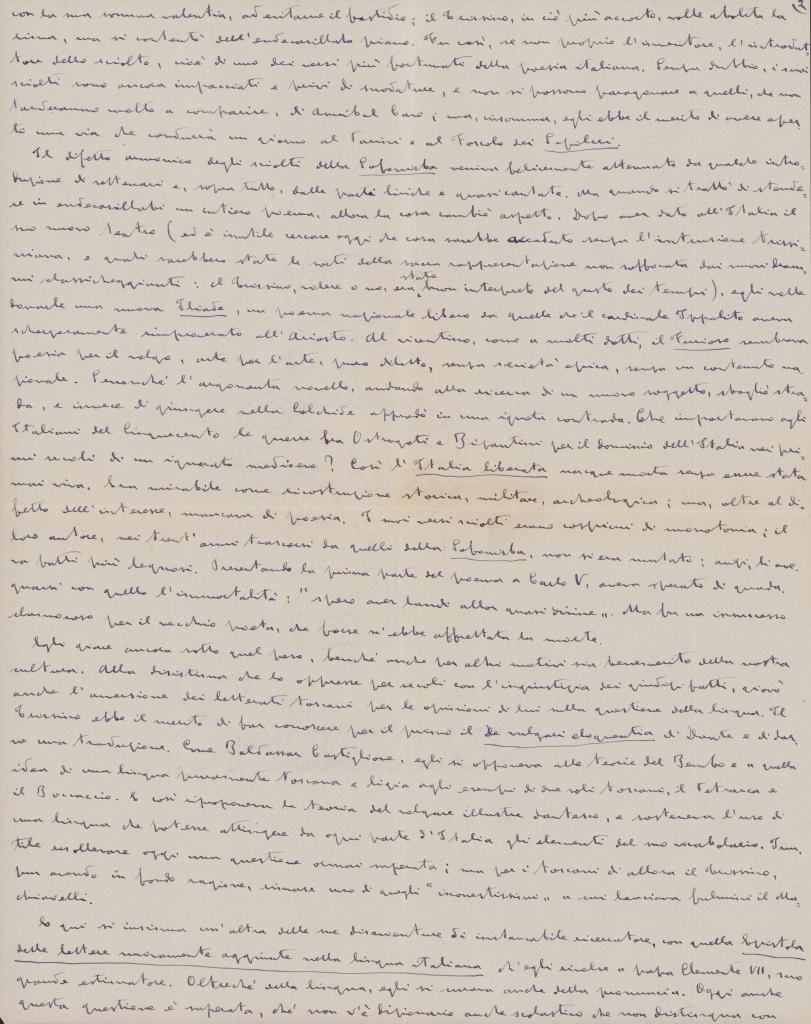 3
con la sua somma valentia, ad evitarne il fastidio; il Trissino, in ciò più accorto, volle abolita la
rima, ma si contentò dell'endecasillabo piano. Fu così, se non proprio l'inventore, l'introdut-
tore dello sciolto, cioè di uno dei versi più fortunati della poesia italiana. Senza dubbio, i suoi
sciolti sono ancora impacciati e privi di snodature, e non si possono paragonare a quelli, che non
tarderanno molto a comparire, di Annibal Caro; ma, insomma, egli ebbe il merito di avere aper-
to una via che condurrà un giorno al Parini e al Foscolo dei Sepolcri.
Il difetto armonico degli sciolti della Sofonisba veniva felicemente attenuato da qualche intro-
duzione di settenari e, sopra tutto, dalle parti liriche e quasi cantate. Ma quando si trattò di stende-
re in endecasillabi un intiero poema, allora la cosa cambiò aspetto. Dopo aver dato all'Italia il
suo nuovo teatro (ed è inutile cercare oggi che cosa sarebbe accaduto senza l'intrusione trissi-
niana, e quali sarebbero state le sorti della sacra rappresentazione non soffocata dai nuovi dram-
mi classicheggianti: il Trissino, volere o no, era stato buon interprete del gusto dei tempi), egli volle
donarle una nuova Iliade, un poema nazionale libero da quelle che il cardinale Ippolito aveva
scherzosamente rimproverato all'Ariosto. Al vicentino, come a molti dotti, il Furioso sembrava
poesia per il volgo, arte per l'arte, puro diletto, senza serietà epica, senza un contenuto na-
zionale. Senonché l'argonauta novello, andando alla ricerca di un nuovo soggetto, sbagliò stra-
da, e invece di giungere nella Colchide approdò in una ignota contrada. Che importavano agli
Italiani del Cinquecento le guerre fra Ostrogoti e Bizantini per il dominio dell'Italia nei pri-
mi secoli di un ignorato medioevo? Così l'Italia liberata nacque morta senza essere stata
mai viva. Era mirabile come ricostruzione storica, militare, archeologica; ma, oltre al di-
fetto dell'interesse, mancava di poesia. I suoi versi sciolti erano cospicui di monotonia; il
loro autore, nei trent'anni trascorsi da quelli della Sofonisba, non si era mutato; anzi, li ave-
va fatti più legnosi. Presentando la prima parte del poema a Carlo V, aveva sperato di guada-
gnarsi con quello l'immortalità: "spero aver laudi allor quasi divine". Ma fu un insuccesso
clamoroso per il vecchio poeta, che forse n'ebbe affrettata la morte.
Egli giace ancora sotto quel peso, benché anche per altri motivi sia benemerito della nostra
cultura. Alla disistima che lo oppresse per secoli con l'ingiustizia dei giudizi fatti, giovò
anche l'avversione dei letterati toscani per le opinioni di lui sulla questione della lingua. Il
Trissino ebbe il merito di far conoscere per il primo il De vulgari eloquentia di Dante e di dar-
ne una traduzione. Come Baldassar Castiglione, egli si opponeva alle teorie del Bembo e a quella
idea di una lingua puramente toscana e ligia agli esempi di due soli toscani, il Petrarca e
il Boccaccio. E così riproponeva la teoria del volgare illustre dantesco, e sosteneva l'uso di
una lingua che potesse attingere da ogni parte d'Italia gli elementi del suo vocabolario. Inu-
tile risollevare oggi una questione ormai superata; ma per i toscani di allora il Trissino,
pur avendo in fondo ragione, rimase uno di quegli "inonestissimi" a cui lanciava fulmini il Ma-
chiavelli.
E qui si insinua un'altra delle sue disavventure di instancabile ricercatore, con quella Epistola
delle lettere nuovamente aggiunte nella lingua italiana ch'egli rivolse a papa Clemente VII, suo
grande estimatore. Oltreché della lingua, egli si curava anche della pronuncia. Oggi anche
questa questione è superata, ché non v'è dizionario anche scolastico che non distingua con